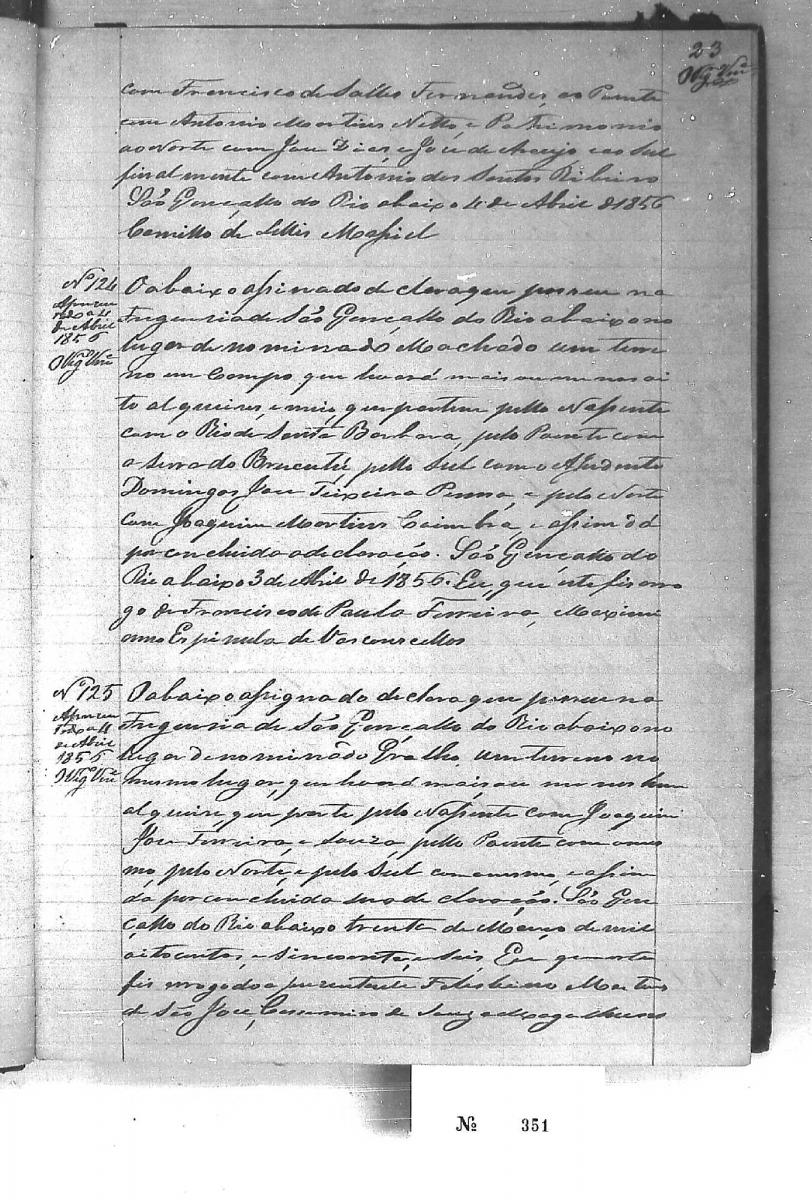 23
Vigr Vnc
com Francisco de Salles Fernandes, ao Poente
com Antonio Martins Netto, e Patrimonio
ao Norte com Jose Dias e Jose de Araujo e ao Sul
finalmente com Antonio dos Santos Ribeiro
São Gonçallo do Rio abaixo 4 de Abril d 1856
Camillo de Lellis Maciel
Nº 124
Apresen
tado a 4
de Abril
1856
O Vigr Vnc
O abaixo assinado declara que possue na
Freguesia de São Gonçallo do Rio abaixo no
lugar denominado Machado um terre
no em Campo, que levará mais ou menos oi
to alqueires, e meio, que partem pello Nascente
com o Rio de Santa Barbara, pelo Poente com
a serra do Brucutú, pello Sul com o Ajudante
Domingos Jose Teixeira Penna, e pelo Norte
com Joaquim Martins Coimbra, e assim dá
por concluida a declaração. São Gonçallo do
Rio abaixo 3 de Abril de 1856. Eu, que este fis a ro
go de Francisco de Paula Ferreira, Maximi
anno Espinula de Vasconcellos
Nº 125
Apresen
tado a 4
de Abril
1856
O Vigr Vnc
O abaixo assignado declara que possue na
Freguesia de São Gonçallo do Rio abaixo no
lugar denominado um terreno no
mesmo lugar, que levará mais ou menos hum
alqueire que parte pelo Nascente com Joaquim
Jose Ferreira, e Souza, pello Poente com o mes
mo, pelo Norte, e pelo Sul com o mesmo, e assim
dá por concluida sua declaração. São Gon
çallo do Rio abaixo trinta de Março de mil
oitocentos, e sincoenta, e seis, Eu que este
fis a rogo do aprezentante Felisbino Martins
de São Jose, Casimiro de Souza Magalhaens
Nº 351